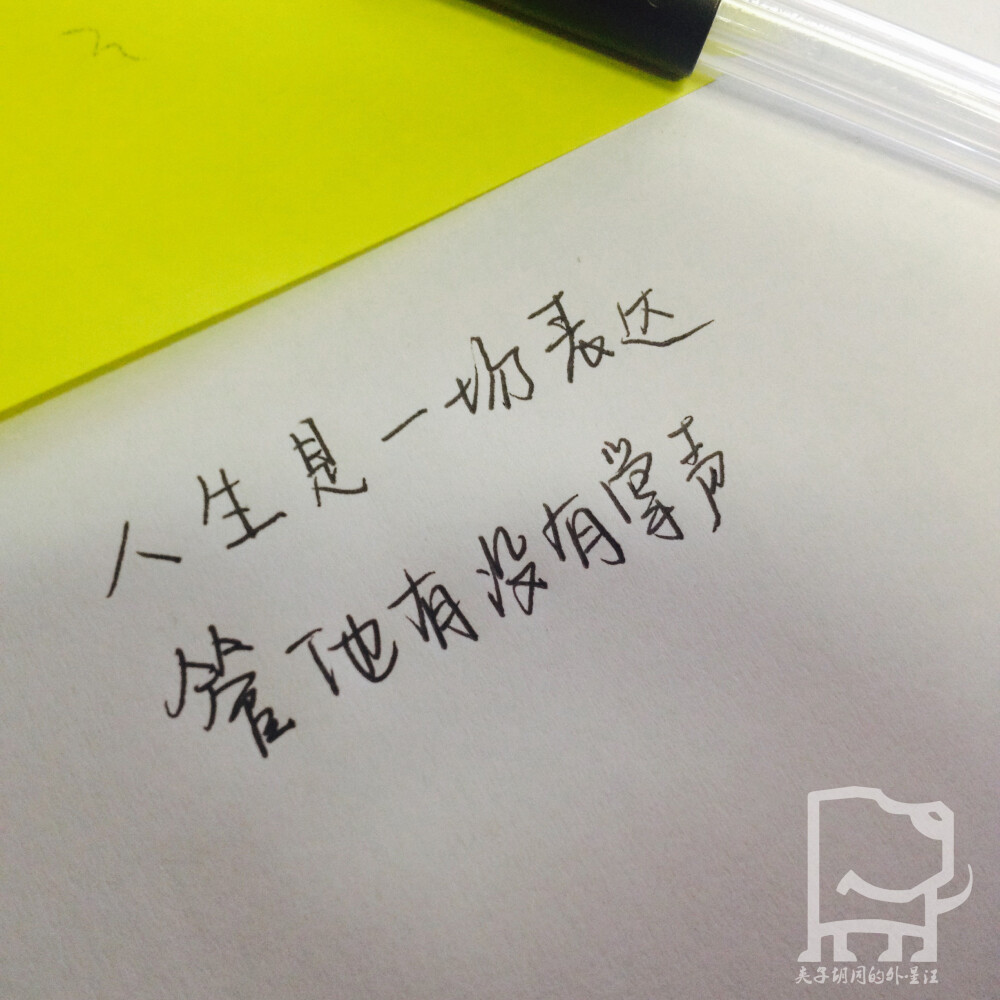 人生是一切表达
管他有没有掌声
夹子胡同的外星汪